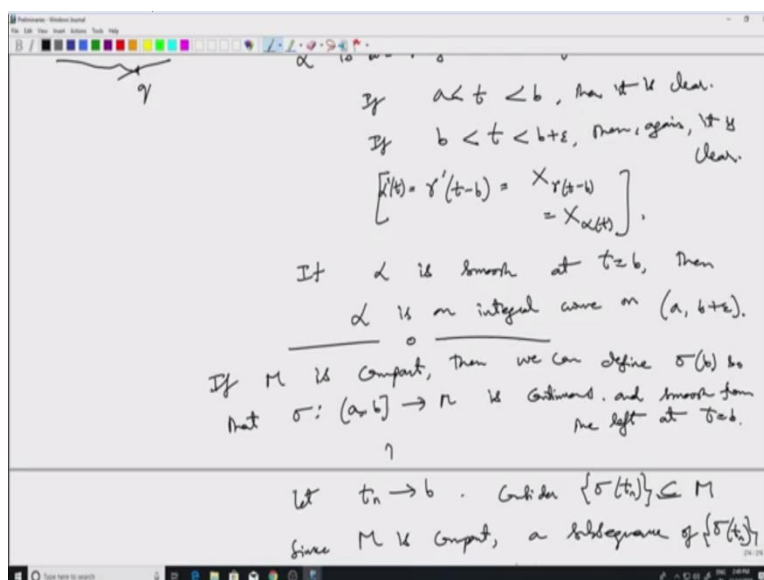 Preliminaries - Windows Journal
File Edit View Insert Actions Tools Help
q
α is an
If a < t < b, then it is clear.
If b < t < b+ε, then, again, it is
clear.
[α'(t) = γ'(t-b) = X_γ(t-b)
= X_α(t)].
If α is smooth at t=b, then
α is an integral curve on (a, b+ε).
If M is compact, then we can define σ(b) so
that σ: (a, b] → M is continuous and smooth from
the left at t=b.
Let t_n → b. Consider {σ(t_n)} ⊆ M
Since M is compact, a subsequence of {σ(t_n)}
Type here to search